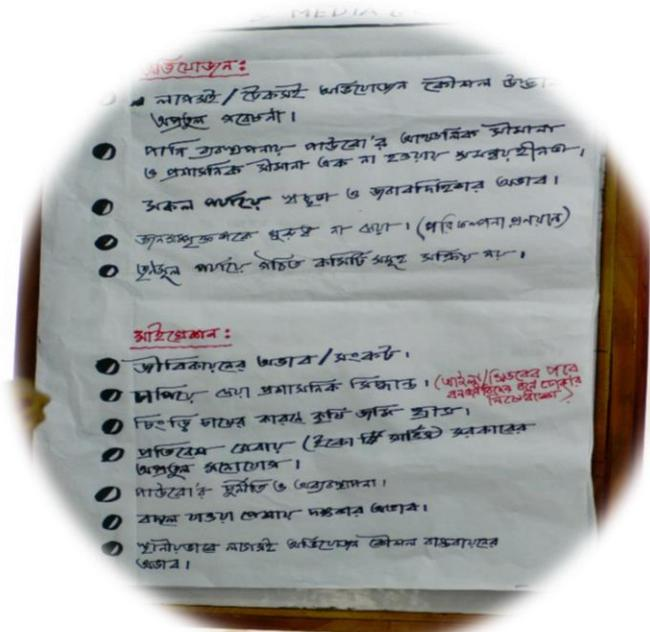 MEDIA
অভিযোজন:
লাগসই/টেকসই অভিযোজন কৌশল
অপ্রতুল গবেষনা।
পানি ব্যবস্থাপনায় পাউবো'র আঞ্চলিক সীমানা
ও প্রশাসনিক সীমানা এক না হওয়ায় সমন্বয়হীনতা।
সকল পর্যায়ে স্বচ্ছতা ও জবাবদিহিতার অভাব।
জনসম্পৃক্ততাকে গুরুত্ব না দেয়া। (পরিকল্পনা প্রণয়নে)
তৃণমূল পর্যায়ে গঠিত কমিটি সমূহ সক্রিয় নয়।
মাইগ্রেশন:
জীবিকায়নের অভাব/সংকট।
চাপিয়ে দেয়া প্রশাসনিক সিদ্ধান্ত। (আইলা/সিডরের পরে
চিংড়ি চাষের কারনে কৃষি জমি হ্রাস।
প্রতিবেশ সেবায় (ইকো সার্ভিস) সরকারের
অপ্রতুল মনোযোগ।
পাউবো'র দুর্নীতি ও অব্যবস্থাপনা।
বদলে যাওয়া পেশায় দক্ষতার অভাব।
স্থানীয়ভাবে লাগসই অভিযোজন কৌশল বাস্তবায়নের
অভাব।